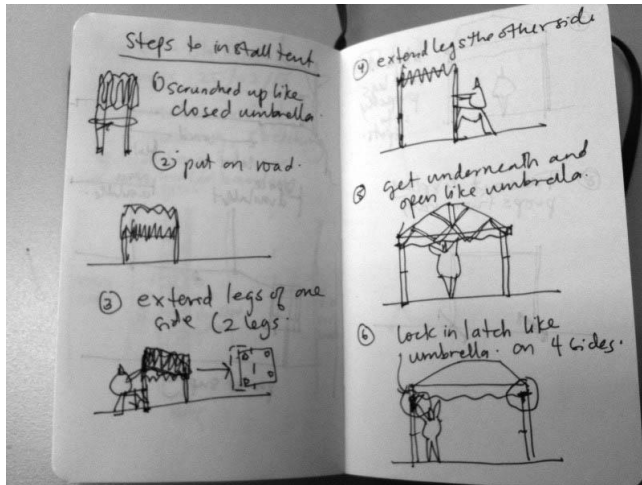 Steps to install tent
① scrunched up like
closed umbrella.
② put on road.
③ extend legs of one
side (2 legs.
④ extend legs the other side
⑤ get underneath and
open like umbrella.
⑥ lock in latch like
umbrella. on 4 sides.